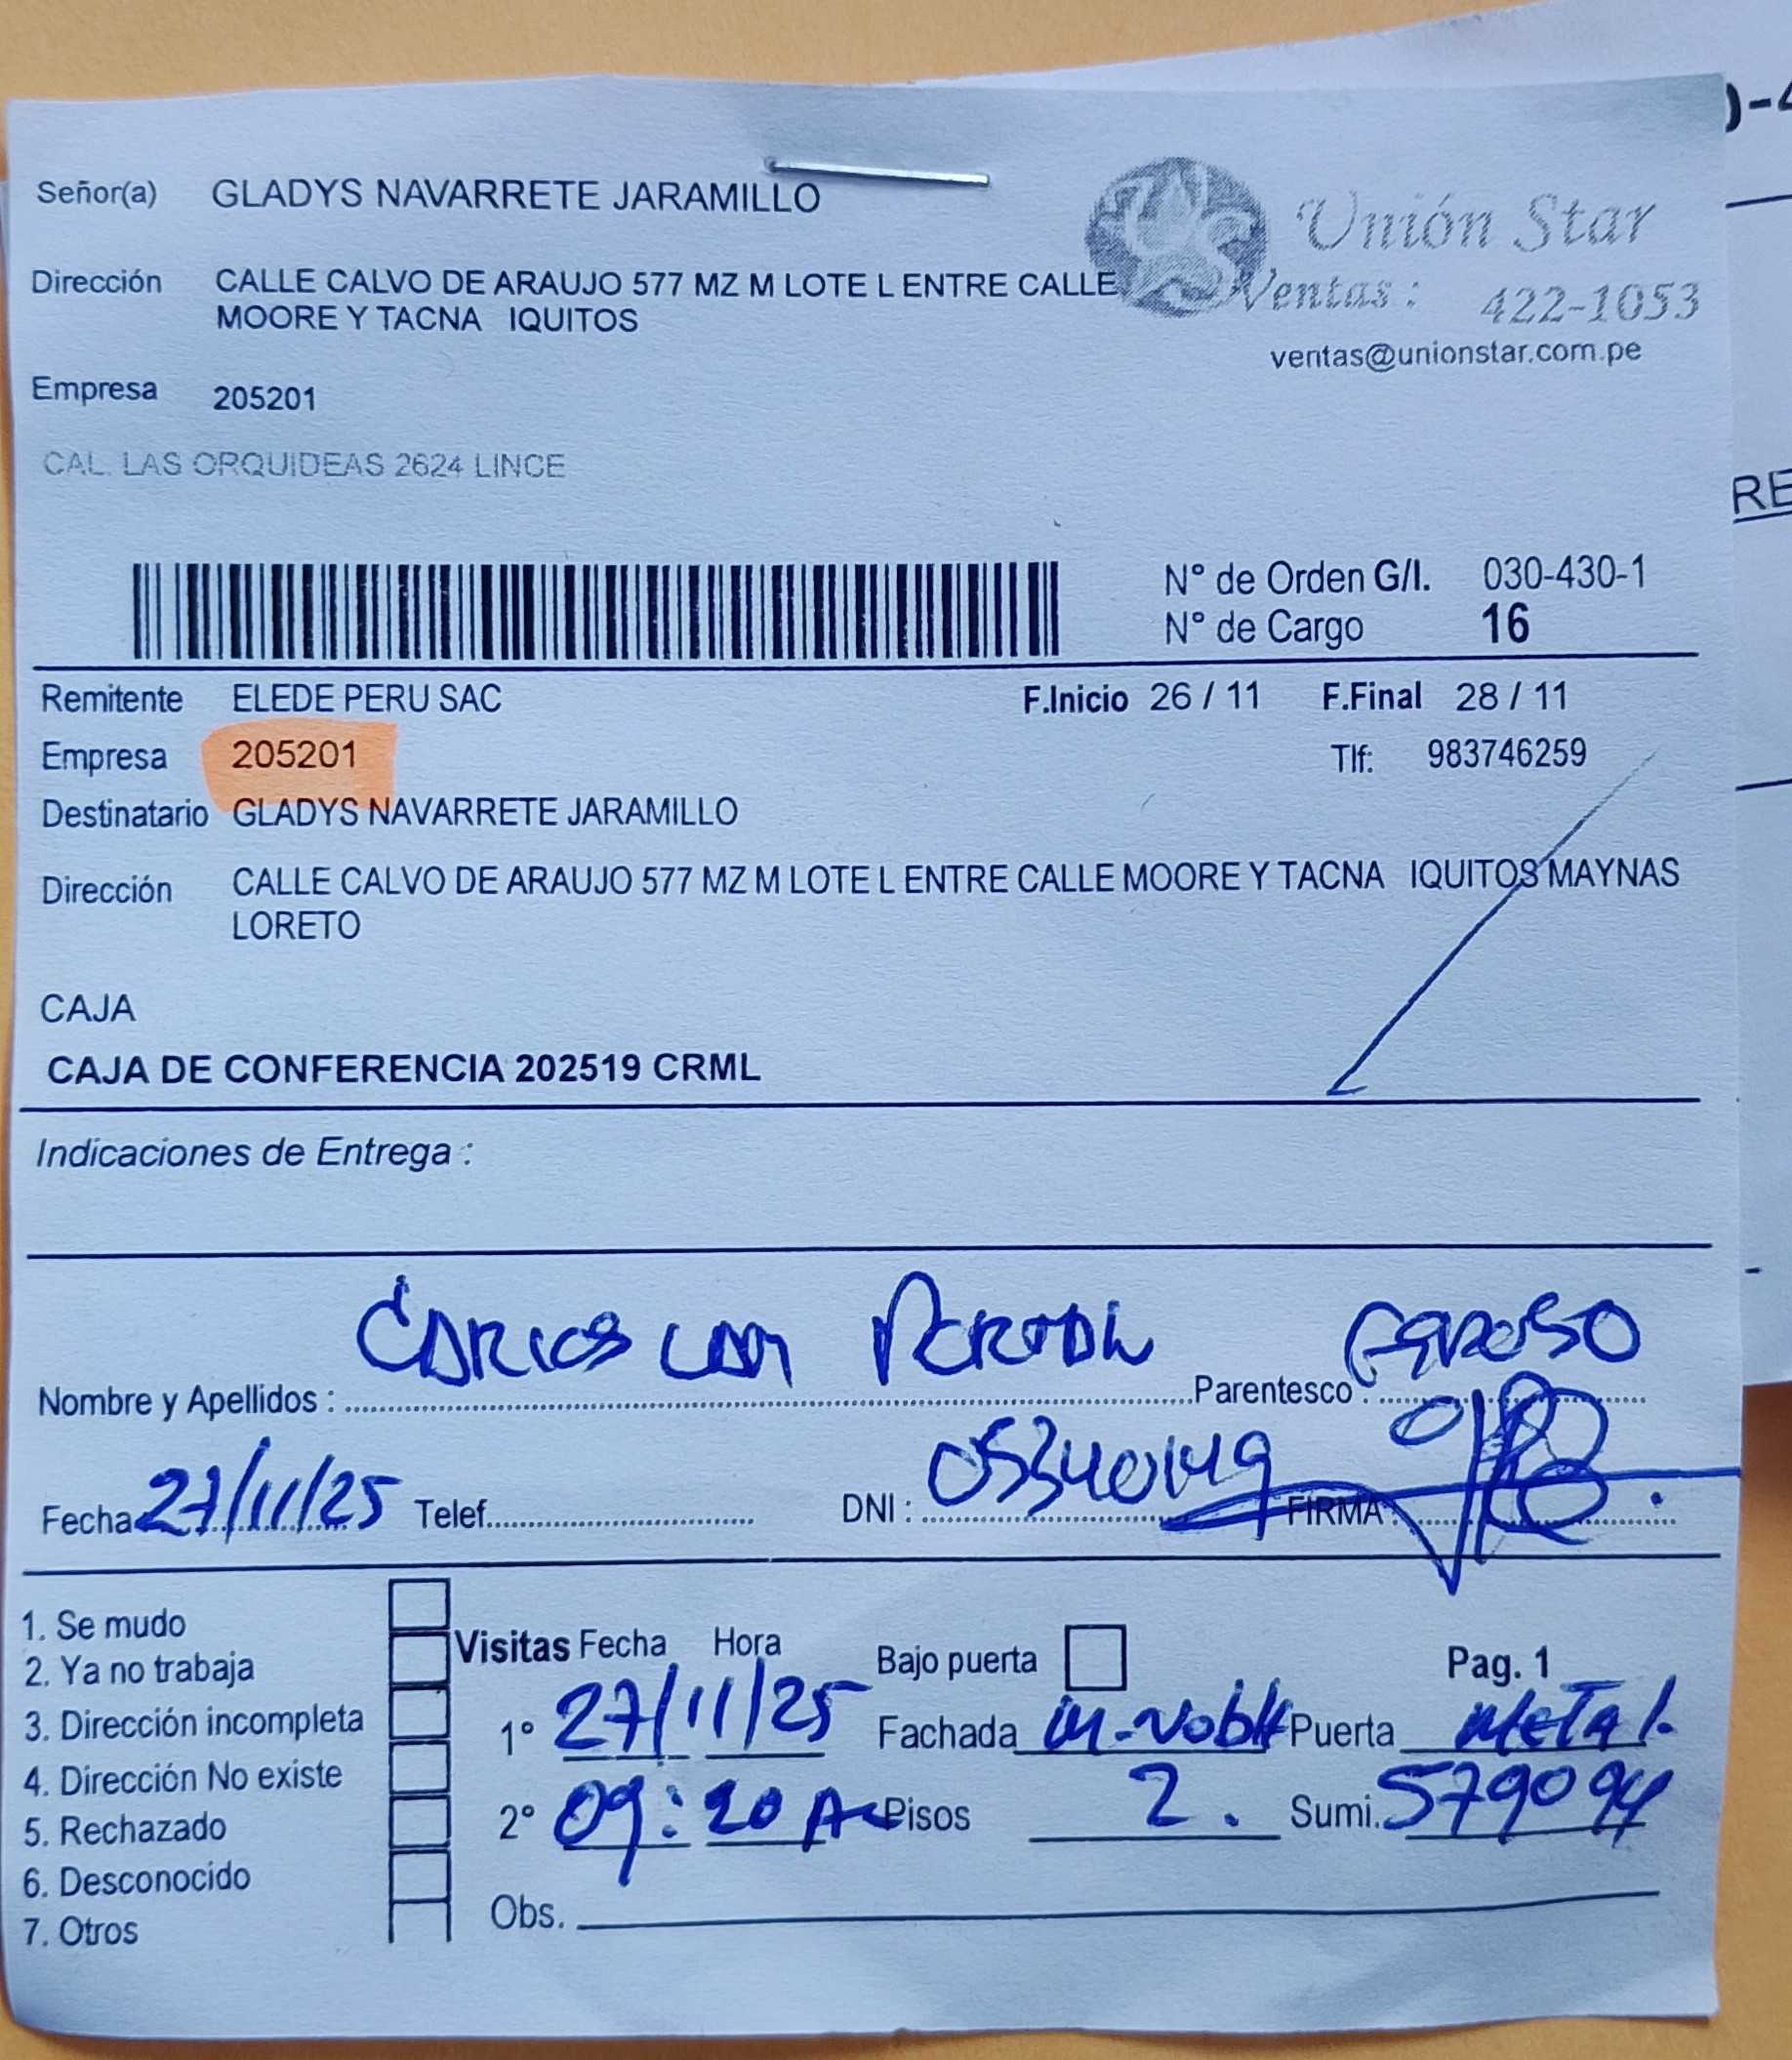 Señor(a) GLADYS NAVARRETE JARAMILLO
Unión Star
Dirección CALLE CALVO DE ARAUJO 577 MZ M LOTE L ENTRE CALLE
MOORE Y TACNA IQUITOS
Ventas : 422-1053
ventas@unionstar.com.pe
Empresa 205201
CAL. LAS ORQUIDEAS 2624 LINCE
N° de Orden G/I. 030-430-1
N° de Cargo 16
Remitente ELEDE PERU SAC F.Inicio 26 / 11 F.Final 28 / 11
Empresa 205201 Tlf: 983746259
Destinatario GLADYS NAVARRETE JARAMILLO
Dirección CALLE CALVO DE ARAUJO 577 MZ M LOTE L ENTRE CALLE MOORE Y TACNA IQUITOS MAYNAS
LORETO
CAJA
CAJA DE CONFERENCIA 202519 CRML
Indicaciones de Entrega :
Nombre y Apellidos : CARLOS LAM Parentesco :
Fecha 27/11/25 Telef. DNI : 05340149 FIRMA :
1. Se mudo
2. Ya no trabaja
3. Dirección incompleta
4. Dirección No existe
5. Rechazado
6. Desconocido
7. Otros
Visitas Fecha Hora Bajo puerta Pag. 1
1° 27/11/25 Fachada M-Noble Puerta Metal.
2° 09:20 A Pisos 2. Sumi. 579094
Obs.
RE